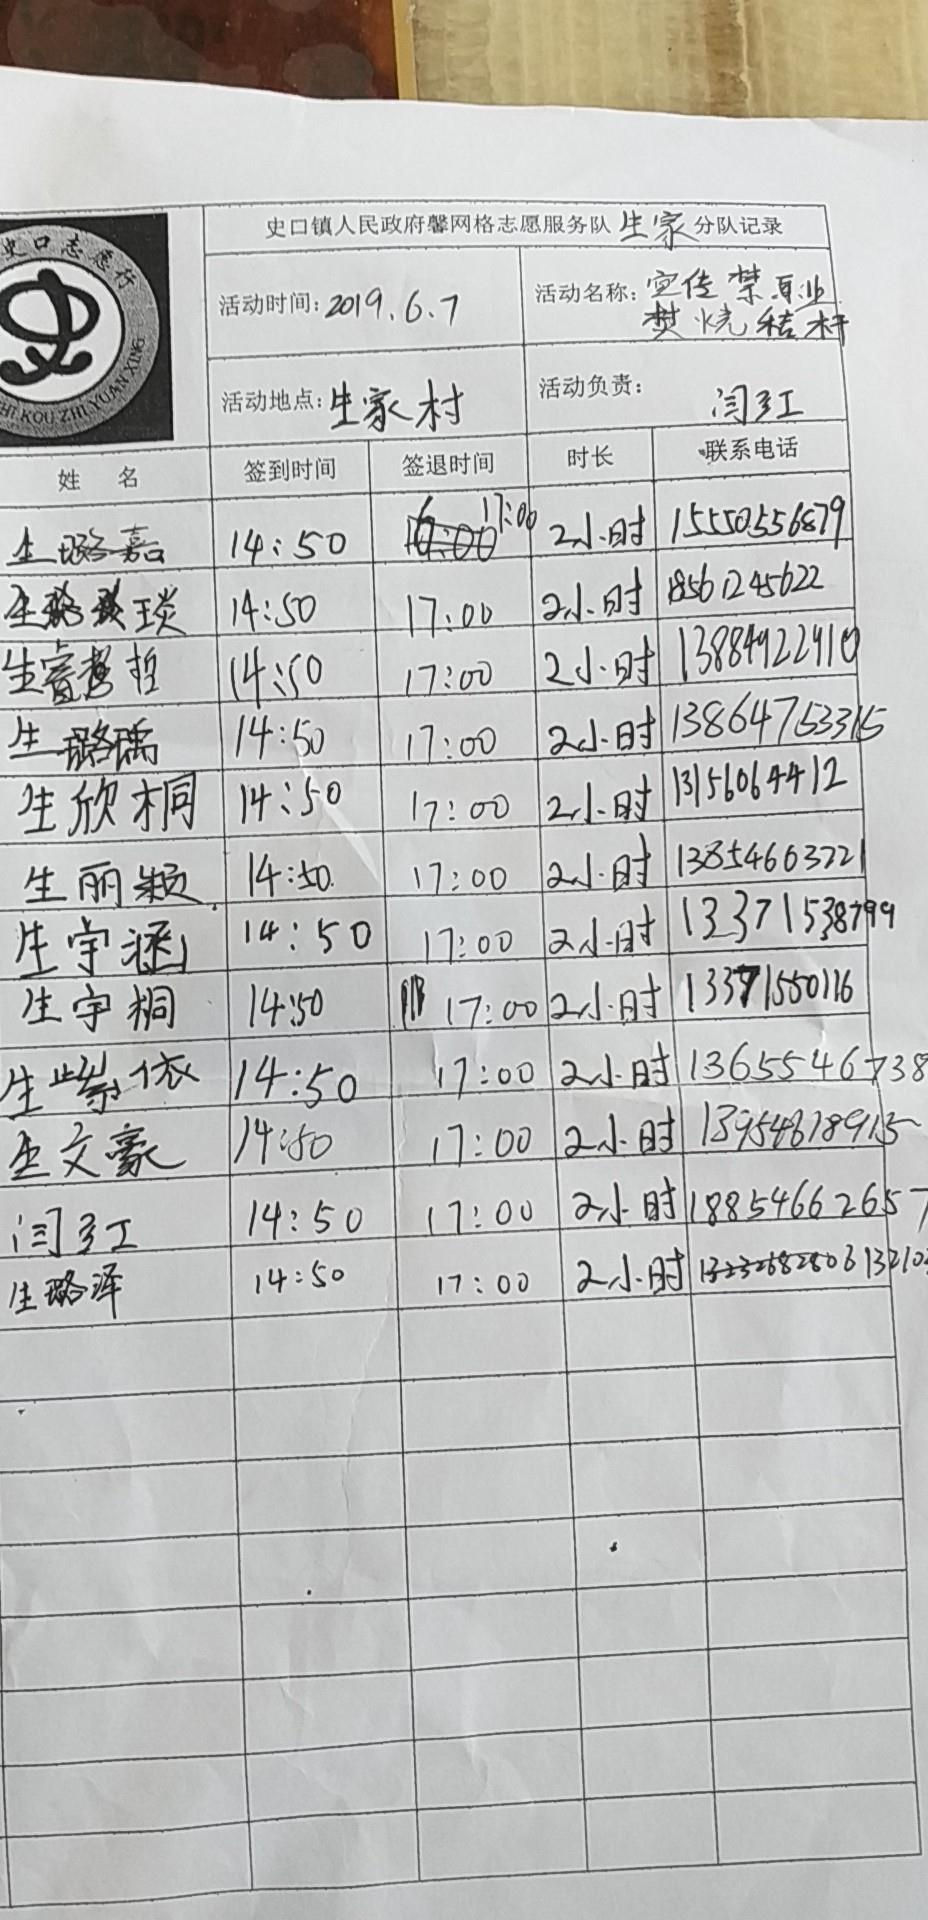 史口镇人民政府馨网格志愿服务队生家分队记录
史口志愿行
SHI KOU ZHI YUAN XING
活动时间:2019.6.7
活动名称:宣传禁
焚烧秸杆
活动地点:生家村
活动负责:闫红
姓 名 签到时间 签退时间 时长 联系电话
生璐嘉 14:50 17:00 2小时 15550556879
生 琰 14:50 17:00 2小时 18561245622
生睿哲 14:50 17:00 2小时 13884922410
生璐瑀 14:50 17:00 2小时 13864753315
生欣桐 14:50 17:00 2小时 13156064412
生丽颖 14:50 17:00 2小时 13854663221
生宇涵 14:50 17:00 2小时 13371538799
生宇桐 14:50 17:00 2小时 13371550116
生紫依 14:50 17:00 2小时 1365546738
生文豪 14:50 17:00 2小时 13954678915
闫红 14:50 17:00 2小时 18854662657
生璐泽 14:50 17:00 2小时